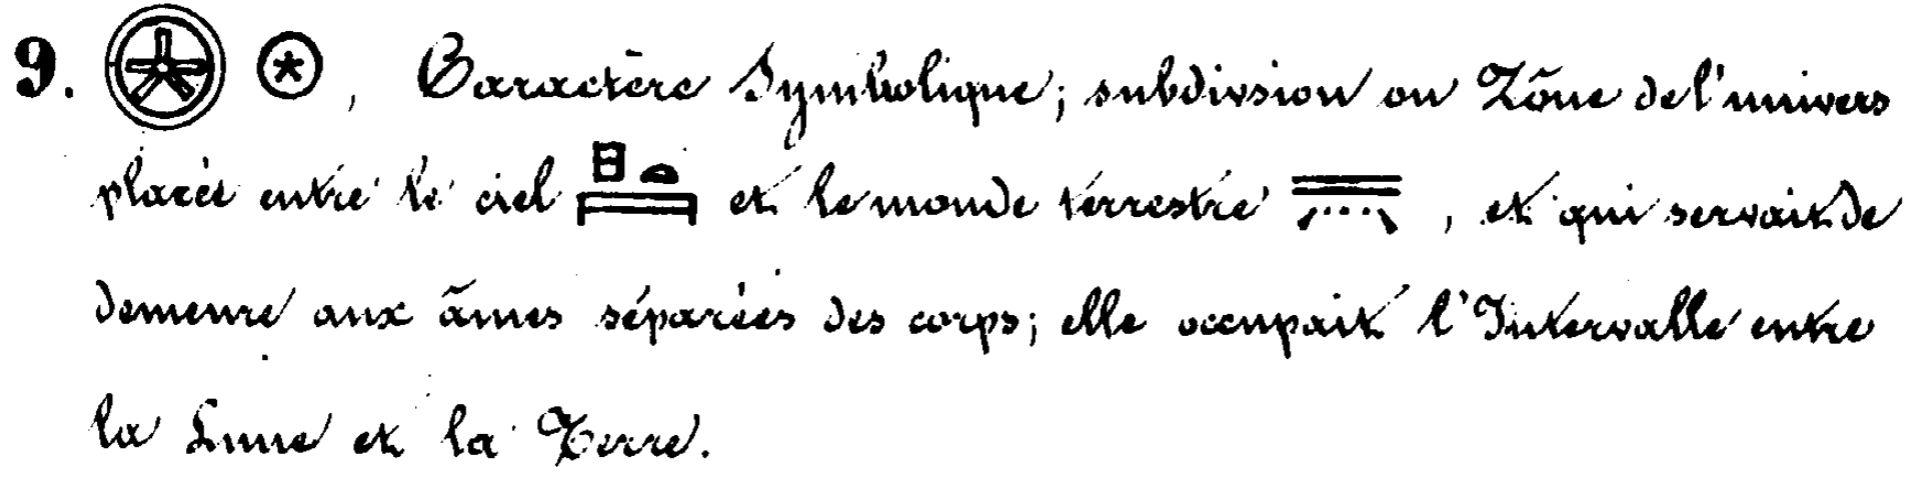 9. 𓇽 𓇽, Caractère Symbolique; subdivsion ou Zône de l'univers
placée entre le ciel 𓊪𓏏𓇯 et le monde terrestre 𓇿, et qui servait de
demeure aux âmes séparées des corps; elle occupait l'Intervalle entre
la Lune et la Terre.